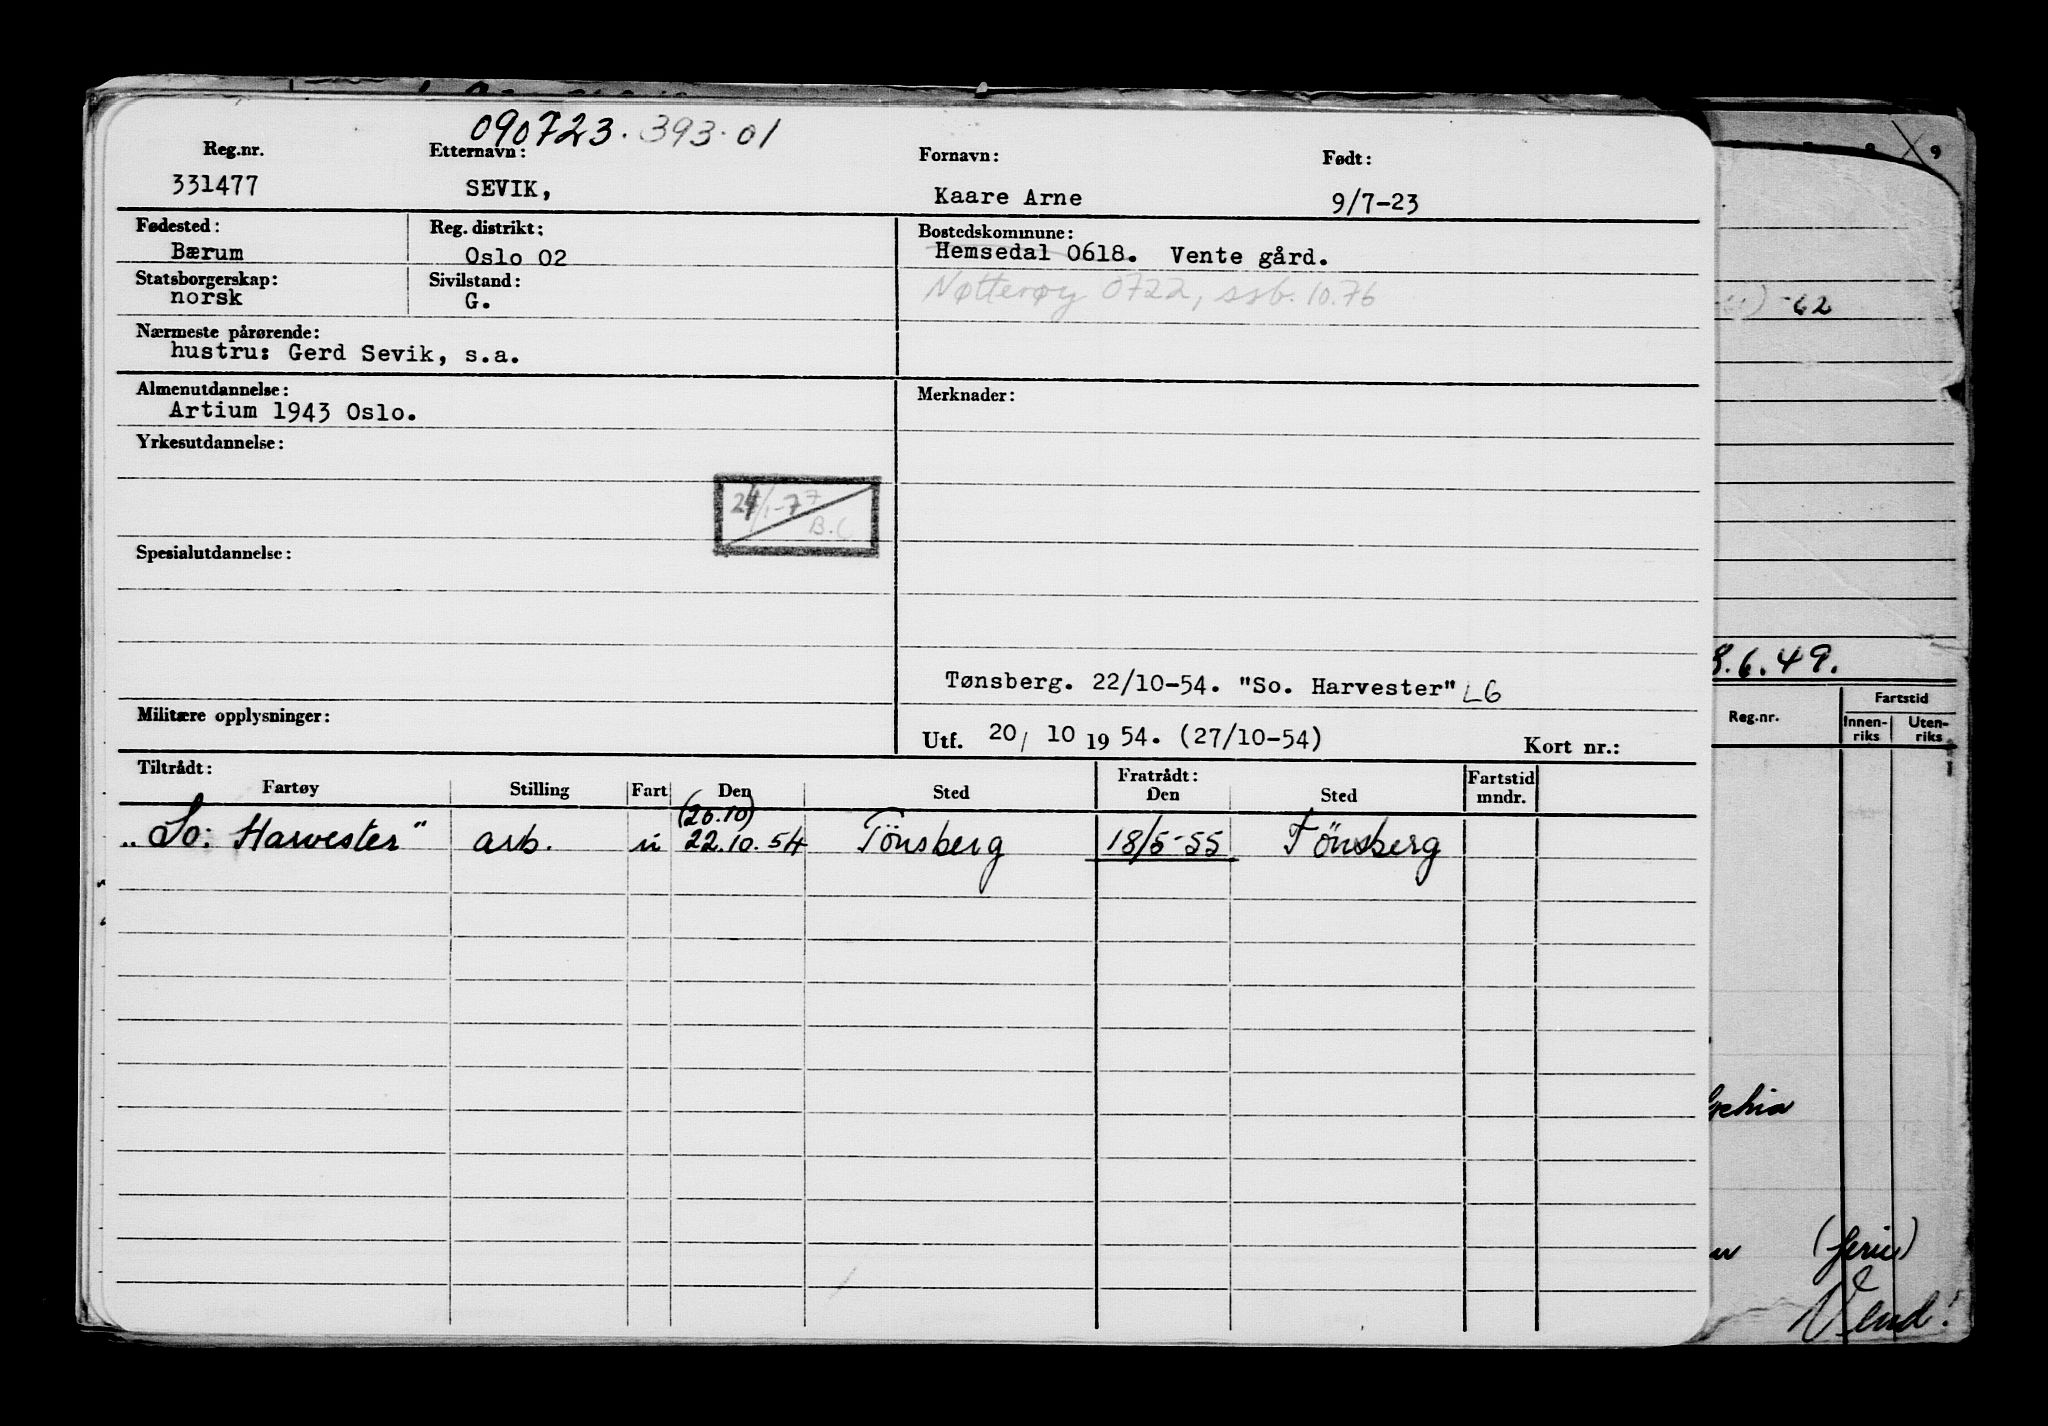 090723. 393.01
Reg.nr. Etternavn: Fornavn: Født:
331477 SEVIK, Kaare Arne 9/7-23
Fødested: Reg. distrikt: Bostedskommune:
Bærum Oslo 02 Hemsedal 0618. Vente gård.
Statsborgerskap: Sivilstand:
norsk G. Nøtterøy 0722, ssb. 10.76
Nærmeste pårørende:
hustru: Gerd Sevik, s.a.
Almenutdannelse: Merknader:
Artium 1943 Oslo.
Yrkesutdannelse:
24/1-77
B.C
Spesialutdannelse:
Tønsberg. 22/10-54. "So. Harvester" LG
Militære opplysninger:
Utf. 20/ 10 19 54. (27/10-54) Kort nr.:
Tiltrådt: Fratrådt: Fartstid
Fartøy Stilling Fart Den Sted Den Sted mndr.
(20.10)
"So: Harvester" arb. u 22.10.54 Tönsberg 18/5-55 Tönsberg
9
-62
8.6.49.
Fartstid
Reg.nr. Innen-riks Uten-riks
(ferie)
Vend!